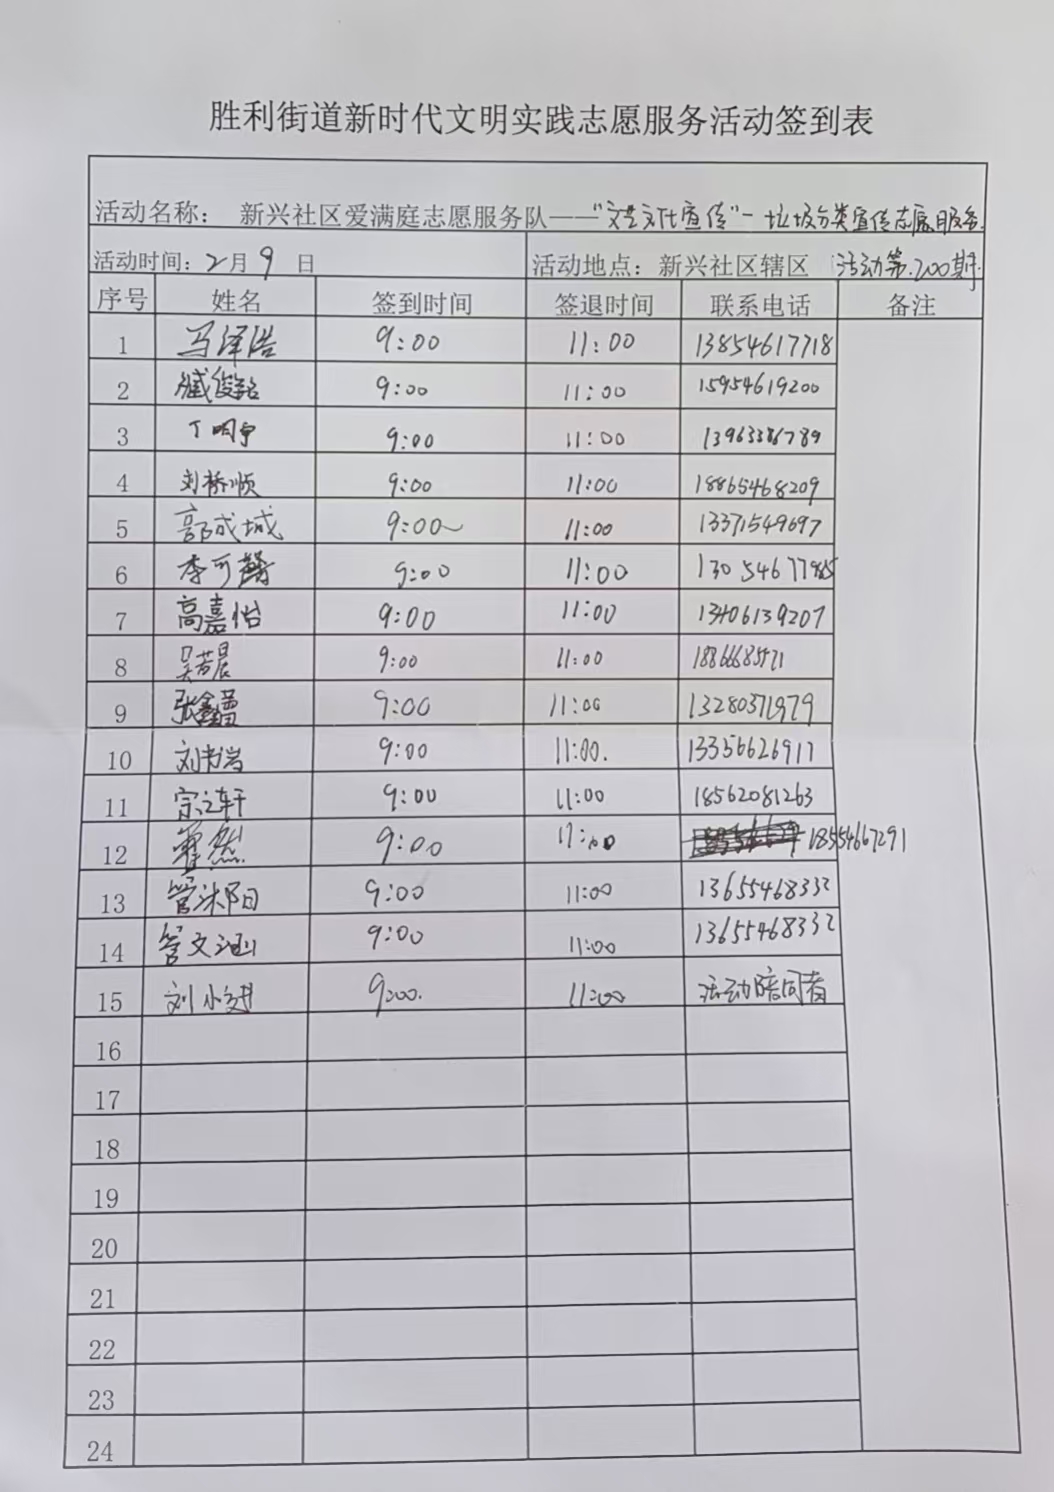 胜利街道新时代文明实践志愿服务活动签到表
活动名称： 新兴社区爱满庭志愿服务队——“文艺文化宣传”-垃圾分类宣传志愿服务
活动时间：2月9日 活动地点：新兴社区辖区 活动第200期
序号 姓名 签到时间 签退时间 联系电话 备注
1 马泽浩 9:00 11:00 13854617718
2 臧俊铭 9:00 11:00 15954619200
3 丁明宇 9:00 11:00 13963386789
4 刘桥顺 9:00 11:00 18865468209
5 郭成城 9:00 11:00 13371549697
6 李可馨 9:00 11:00
7 高嘉怡 9:00 11:00 13406139207
8 吴若晨 9:00 11:00
9 张鑫 9:00 11:00 13280371979
10 刘书岩 9:00 11:00. 13356626917
11 宗之轩 9:00 11:00 18562081263
12 霍然 9:00 11:00 18554667291
13 管沐阳 9:00 11:00 13655468332
14 管文涵 9:00 11:00 13655468332
15 刘小 9:00. 11:00 活动陪同者
16
17
18
19
20
21
22
23
24